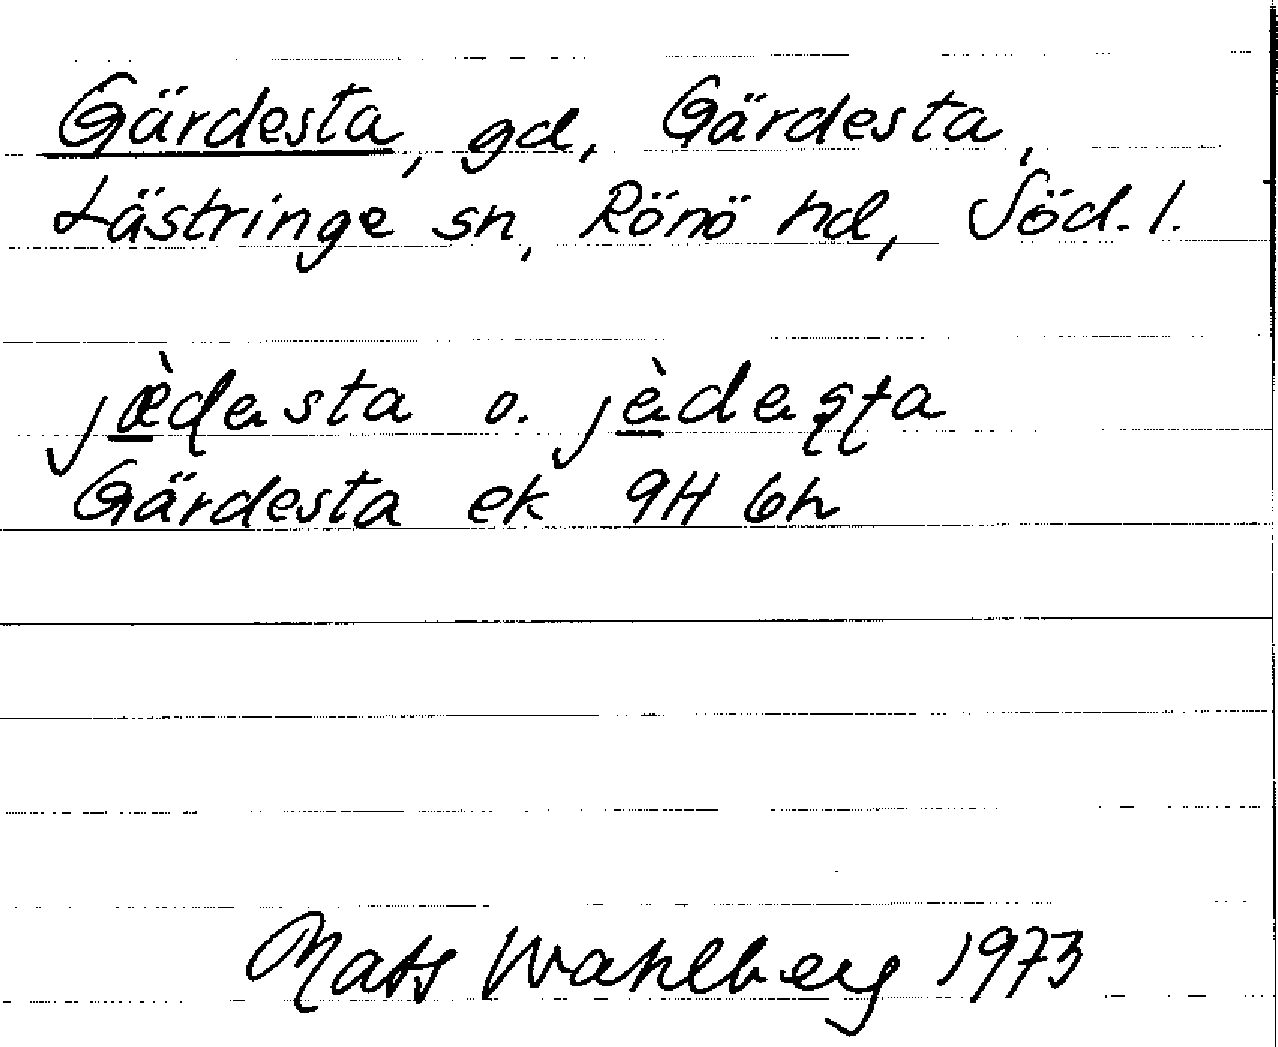 Gärdesta, gd, Gärdesta,
Lästringe sn, Rönö hd, Söd. l.
jæ̀ɖasta o. jèdaʂʈa
Gärdesta ek 9H 6h
Mats Wahlberg 1973